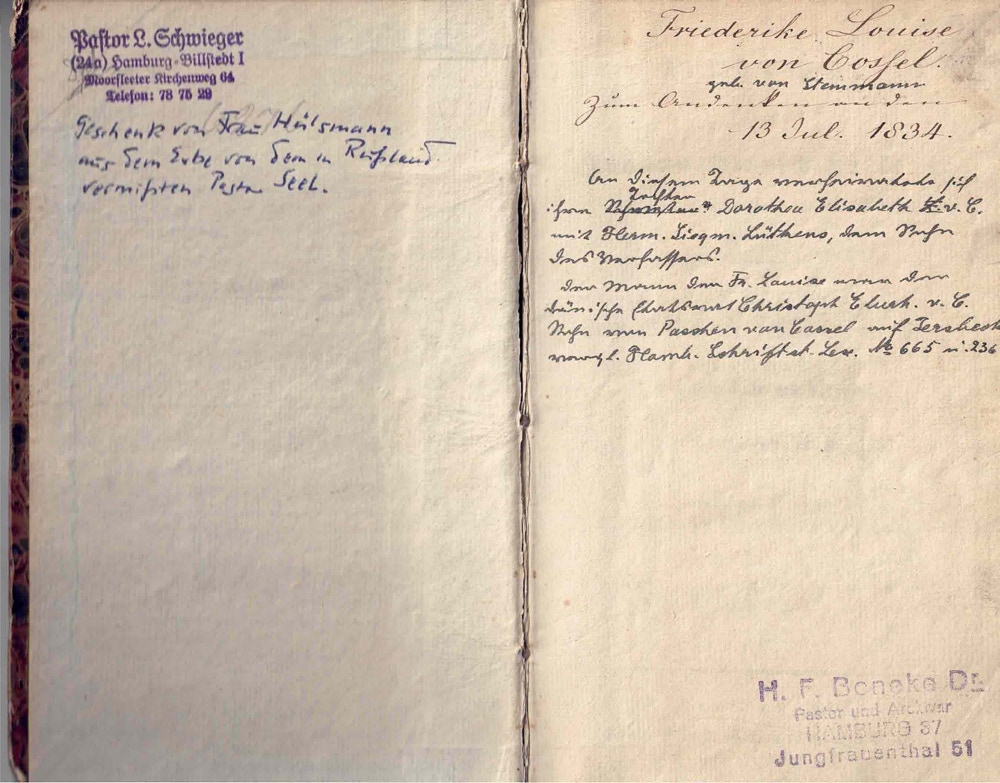 Pastor L. Schwieger
(24a) Hamburg-Billstedt I
Moorfleeter Kirchenweg 64
Telefon: 78 75 29
Geschenk von Frau Hülsmann
aus dem Erbe von dem in Rußland
vermißten Pastor Seel.
Friederike Louise
von Cossel.
geb. von Stemmann
Zum Andenken an den
13 Jul. 1834.
An diesem Tage verheiratete sich
Tochter
ihre Dorothea Elisabeth v. C.
mit Herm. Siegm. Lüthens, dem Sohn
des Verfassers.
Der Mann der Fr. Louise war der
dänische Etatsrat Christoph v. C.
Sohn von Paschen von Cossel auf Jersbeck
vergl. Hamb. Schriftst. Lex. No 665 u. 236
H. F. Beneke Dr.
Pastor und Archivar
HAMBURG 37
Jungfrauenthal 51